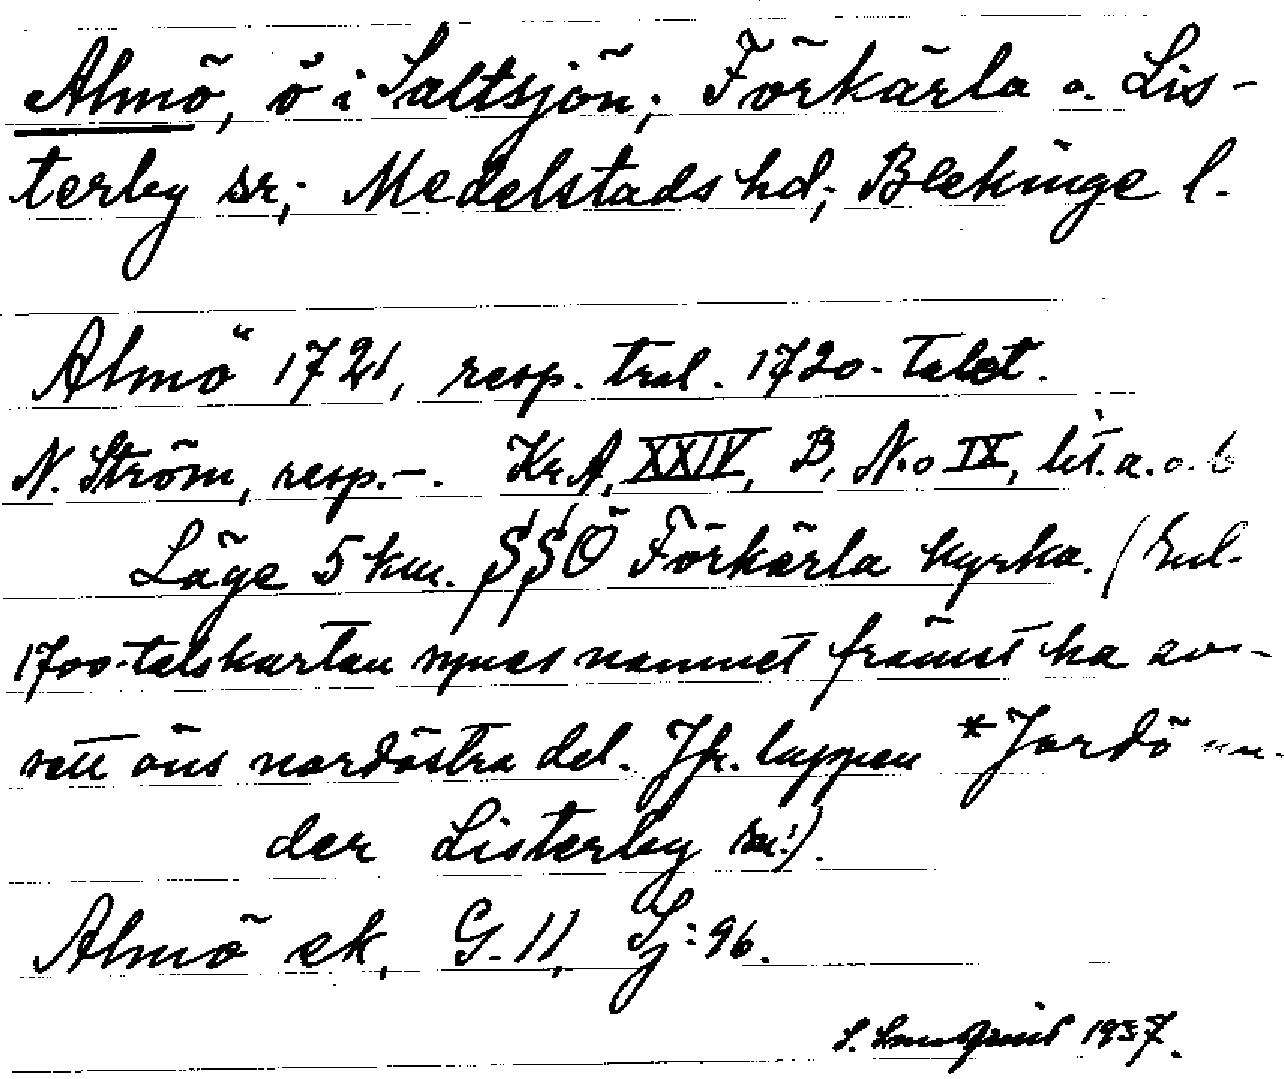 Almö, ö i Saltsjön; Förkärla o. Lis-
terby sr; Medelstads hd; Blekinge l.
Almö 1721, resp. trol. 1720-talet.
N. Ström, resp.-. Kr.A. XXIV, B, N.o IX, lit. a. o. b
Läge 5 km. SSÖ Förkärla kyrka. (Enl.
1700-talskartan synes namnet främst ha av-
sett öns nordöstra del. Jfr. lappen *Jordö un-
der Listerby sn!).
Almö ek, G. 11, Sj: 96.
S. 1937.